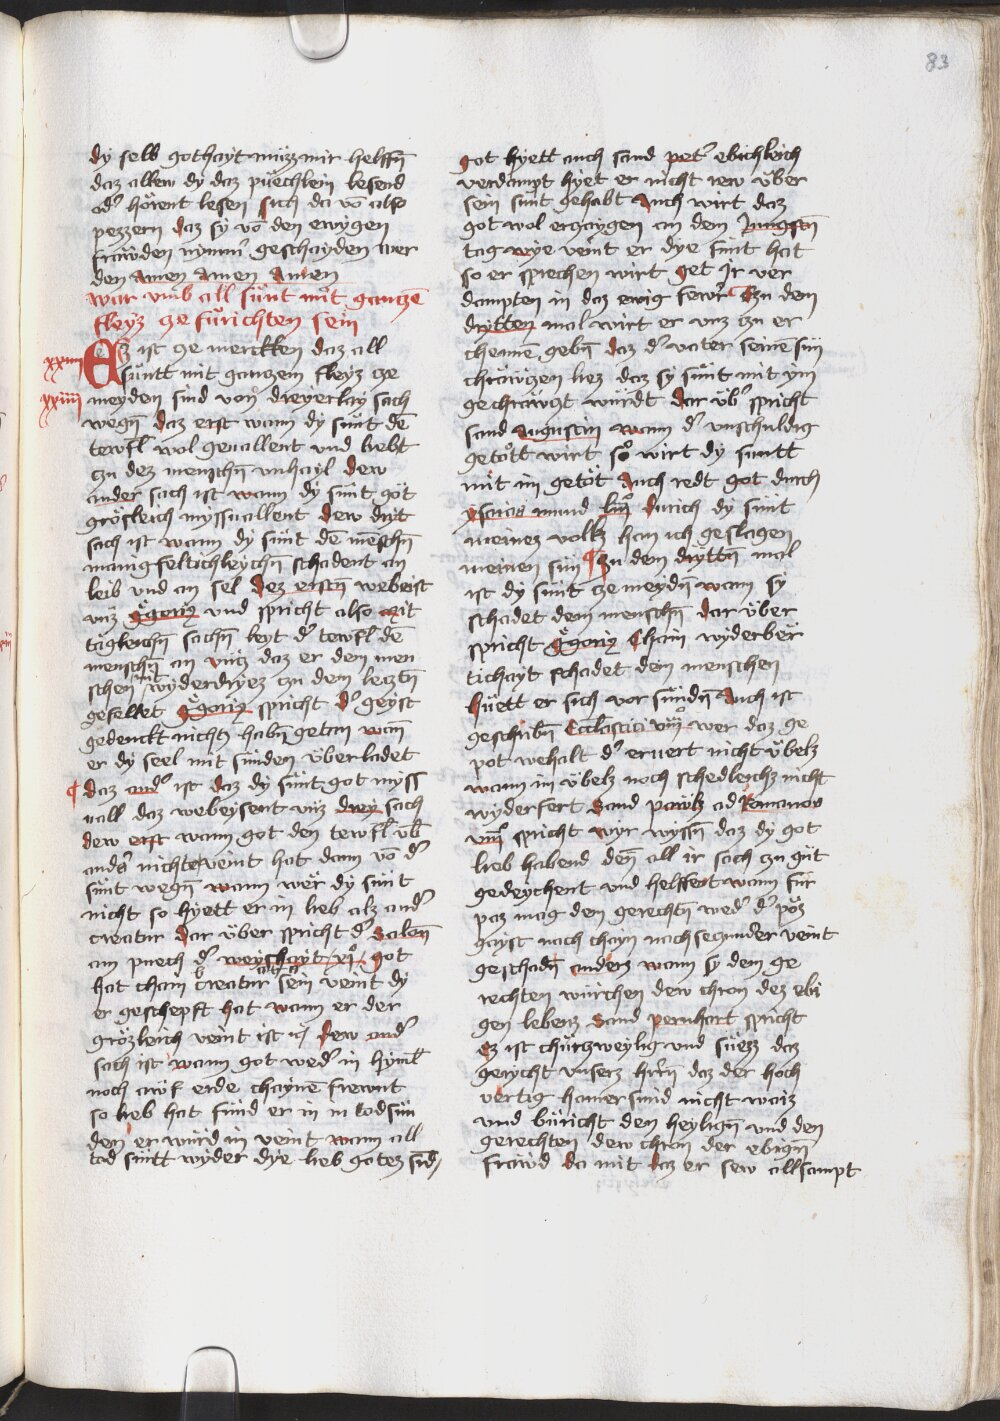 83
dy selb gothayt müzz mir helffn̄
daz allew dy daz püechlein lesend
od̕ hörent lesen sich da vō also
pezzern daz sy vō den ewygen
frawden nym̄er geschayden wer
den amen amen Amen
war vmb all sünt mit gantzē
fleyz ze fürichten sein
xxiiii
Ez ist ze merkken daz all
süntt mit gantzem fleyz ze
xxiiii
meyden sind von dreyerlay sach
wegn̄ daz erst wann dy sünt dē
tewfl wol geuallent vnd liebt
zu dez menschn̄ vnhayl dew
ander sach ist wann dy sünt got
gröfleich myssuallent dew drit
sach ist wann dy sünt dē menschn̄
manigfeltichleychn̄ schadent an
leib vnd an sel dez ersten webeist
vnz Gregoriz vnd spricht also mit
tägleichn̄ sachn̄ leyt d̕ tewfl dē
menschn̄ an vntz daz er dem men
schen mit wyderdryez zu dem letztn̄
gesellet Gregoriz spricht d̕ geyst
gedenckt nichts habn̄ getan wan̄
er dy seel mit sünden überladet
¶ daz and̕ ist daz dy sünt got myss
uall daz webeysent vnz drey sach
dew erst wann got den tewfl vb̄
anders nichts veint hat dann vō d̕
sünt wegn̄ wann wer dy sünt
nicht so hyett er in lieb alz and̕
creatur dar über spricht d̕ Salen̄
an puech d̕ weyshayt xi° got
hat chain creatur sein veint dy
er geschepft hat wann er der
grözleich veint ist dew and̕
sach ist wann got wed̕ in hyml̄
noch awf erde chaynē frewnt
so lieb hat fünd er in in todsün
den er würd in veint wann all
tod süntt wyder dye lieb gotez sind
got hyett auch sand pet̕ ebichleich
verdampt hyet er nicht rew über
sein sünt gehabt Auch wirt daz
got wol erzaygen an dem Jungstn̄
tag wye veint er dye sünt hat
so er sprechen wirt get ir ver
dampten in daz ewig fewr ¶ Zu dem
drytten mal wirt er vnz zu er
chennē gebn̄ daz d̕ vater seinē sün
chräwtzen liez daz sy sünt mit ym
gechrawtzt würdt dar üb̕ spricht
sand Augustin wann d̕ vnschuldig
getött wirt so wirt dy süntt
mit im getöt Auch redt got durch
ysaias mund liii° durich dy sünt
meinez volkz han ich geslagen
meinen sün ¶ Zu dem drittn̄ mal
ist dy sünt ze meydn̄ wann sy
schadet dem menschn̄ dar über
spricht Gregoriz chain wyderbär
tichayt schadet dem menschen
hüett er sich vor sündn̄ Auch ist
geschribn̄ Ecclesiastici viii° wer daz ge
pot wehalt d̕ eruert nicht übelz
wann im übelz noch schedleichz nicht
wyderfert Sand pawlz ad Romanos
viii° spricht wyr wyssn̄ daz dy got
lieb habend den̄ all ir sach zu güt
gedeychent vnd helffent wann für
paz mag den gerechtn̄ wed̕ d̕ pöz
gayst noch chayn nachsegunder veint
geschadn̄ anders wann sy dem ge
rechten würchen dew chron dez ebi
gen lebenz Sand pernhart spricht
Ez ist churtzweylig vnd süezz daz
gericht vnserz hern̄ daz der hoch
vertig hamer sind nicht waiz
vnd büricht den heylign̄ vnd den
gerechten dew chron der ebign̄
frawd da mit daz er sew allsampt